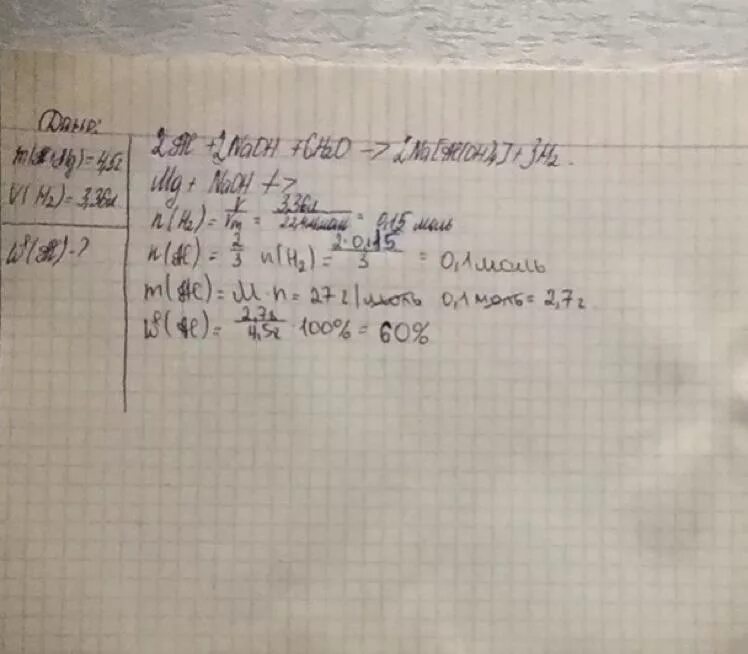 Дано:
m(Al,Mg)=4,5г
V(H₂)=3,36л
W(Al)-?
2Al + 2NaOH + 6H₂O -> 2Na[Al(OH)₄] + 3H₂.
Mg + NaOH +>
n(H₂) = V/Vm = 3,36л/22,4л/моль = 0,15 моль
n(Al) = 2/3 n(H₂) = 2·0,15/3 = 0,1 моль
m(Al) = M·n = 27 г/моль 0,1 моль = 2,7г.
W(Al) = 2,7г/4,5г · 100% = 60%